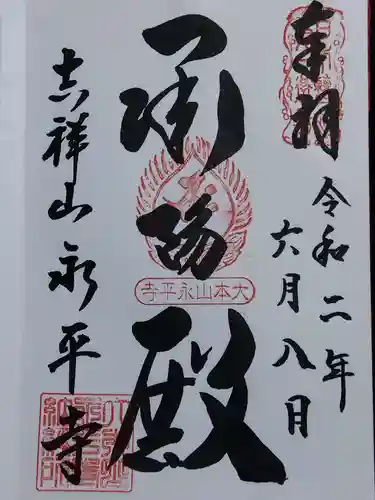 奉拝
令和二年
六月八日
承陽殿
大本山永平寺
吉祥山永平寺